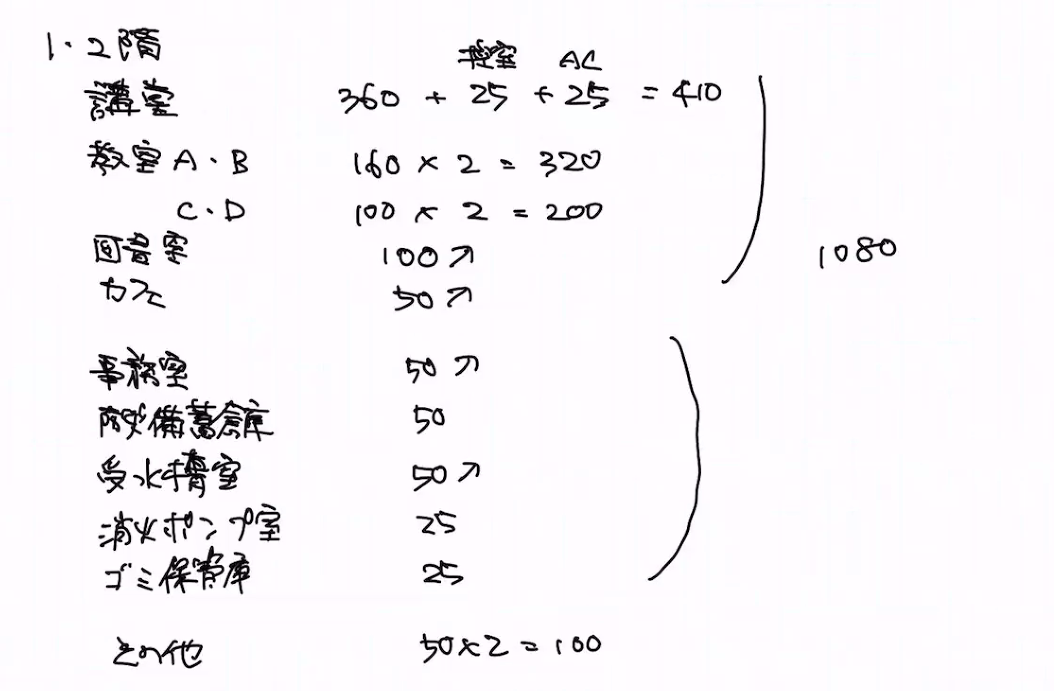 1・2階
控室 AC
講堂 360 + 25 + 25 = 410
教室 A・B 160 × 2 = 320
C・D 100 × 2 = 200
図書室 100↗
カフェ 50↗
1080
事務室 50↗
防災備蓄倉庫 50
受水槽室 50↗
消火ポンプ室 25
ゴミ保管庫 25
その他 50×2 = 100